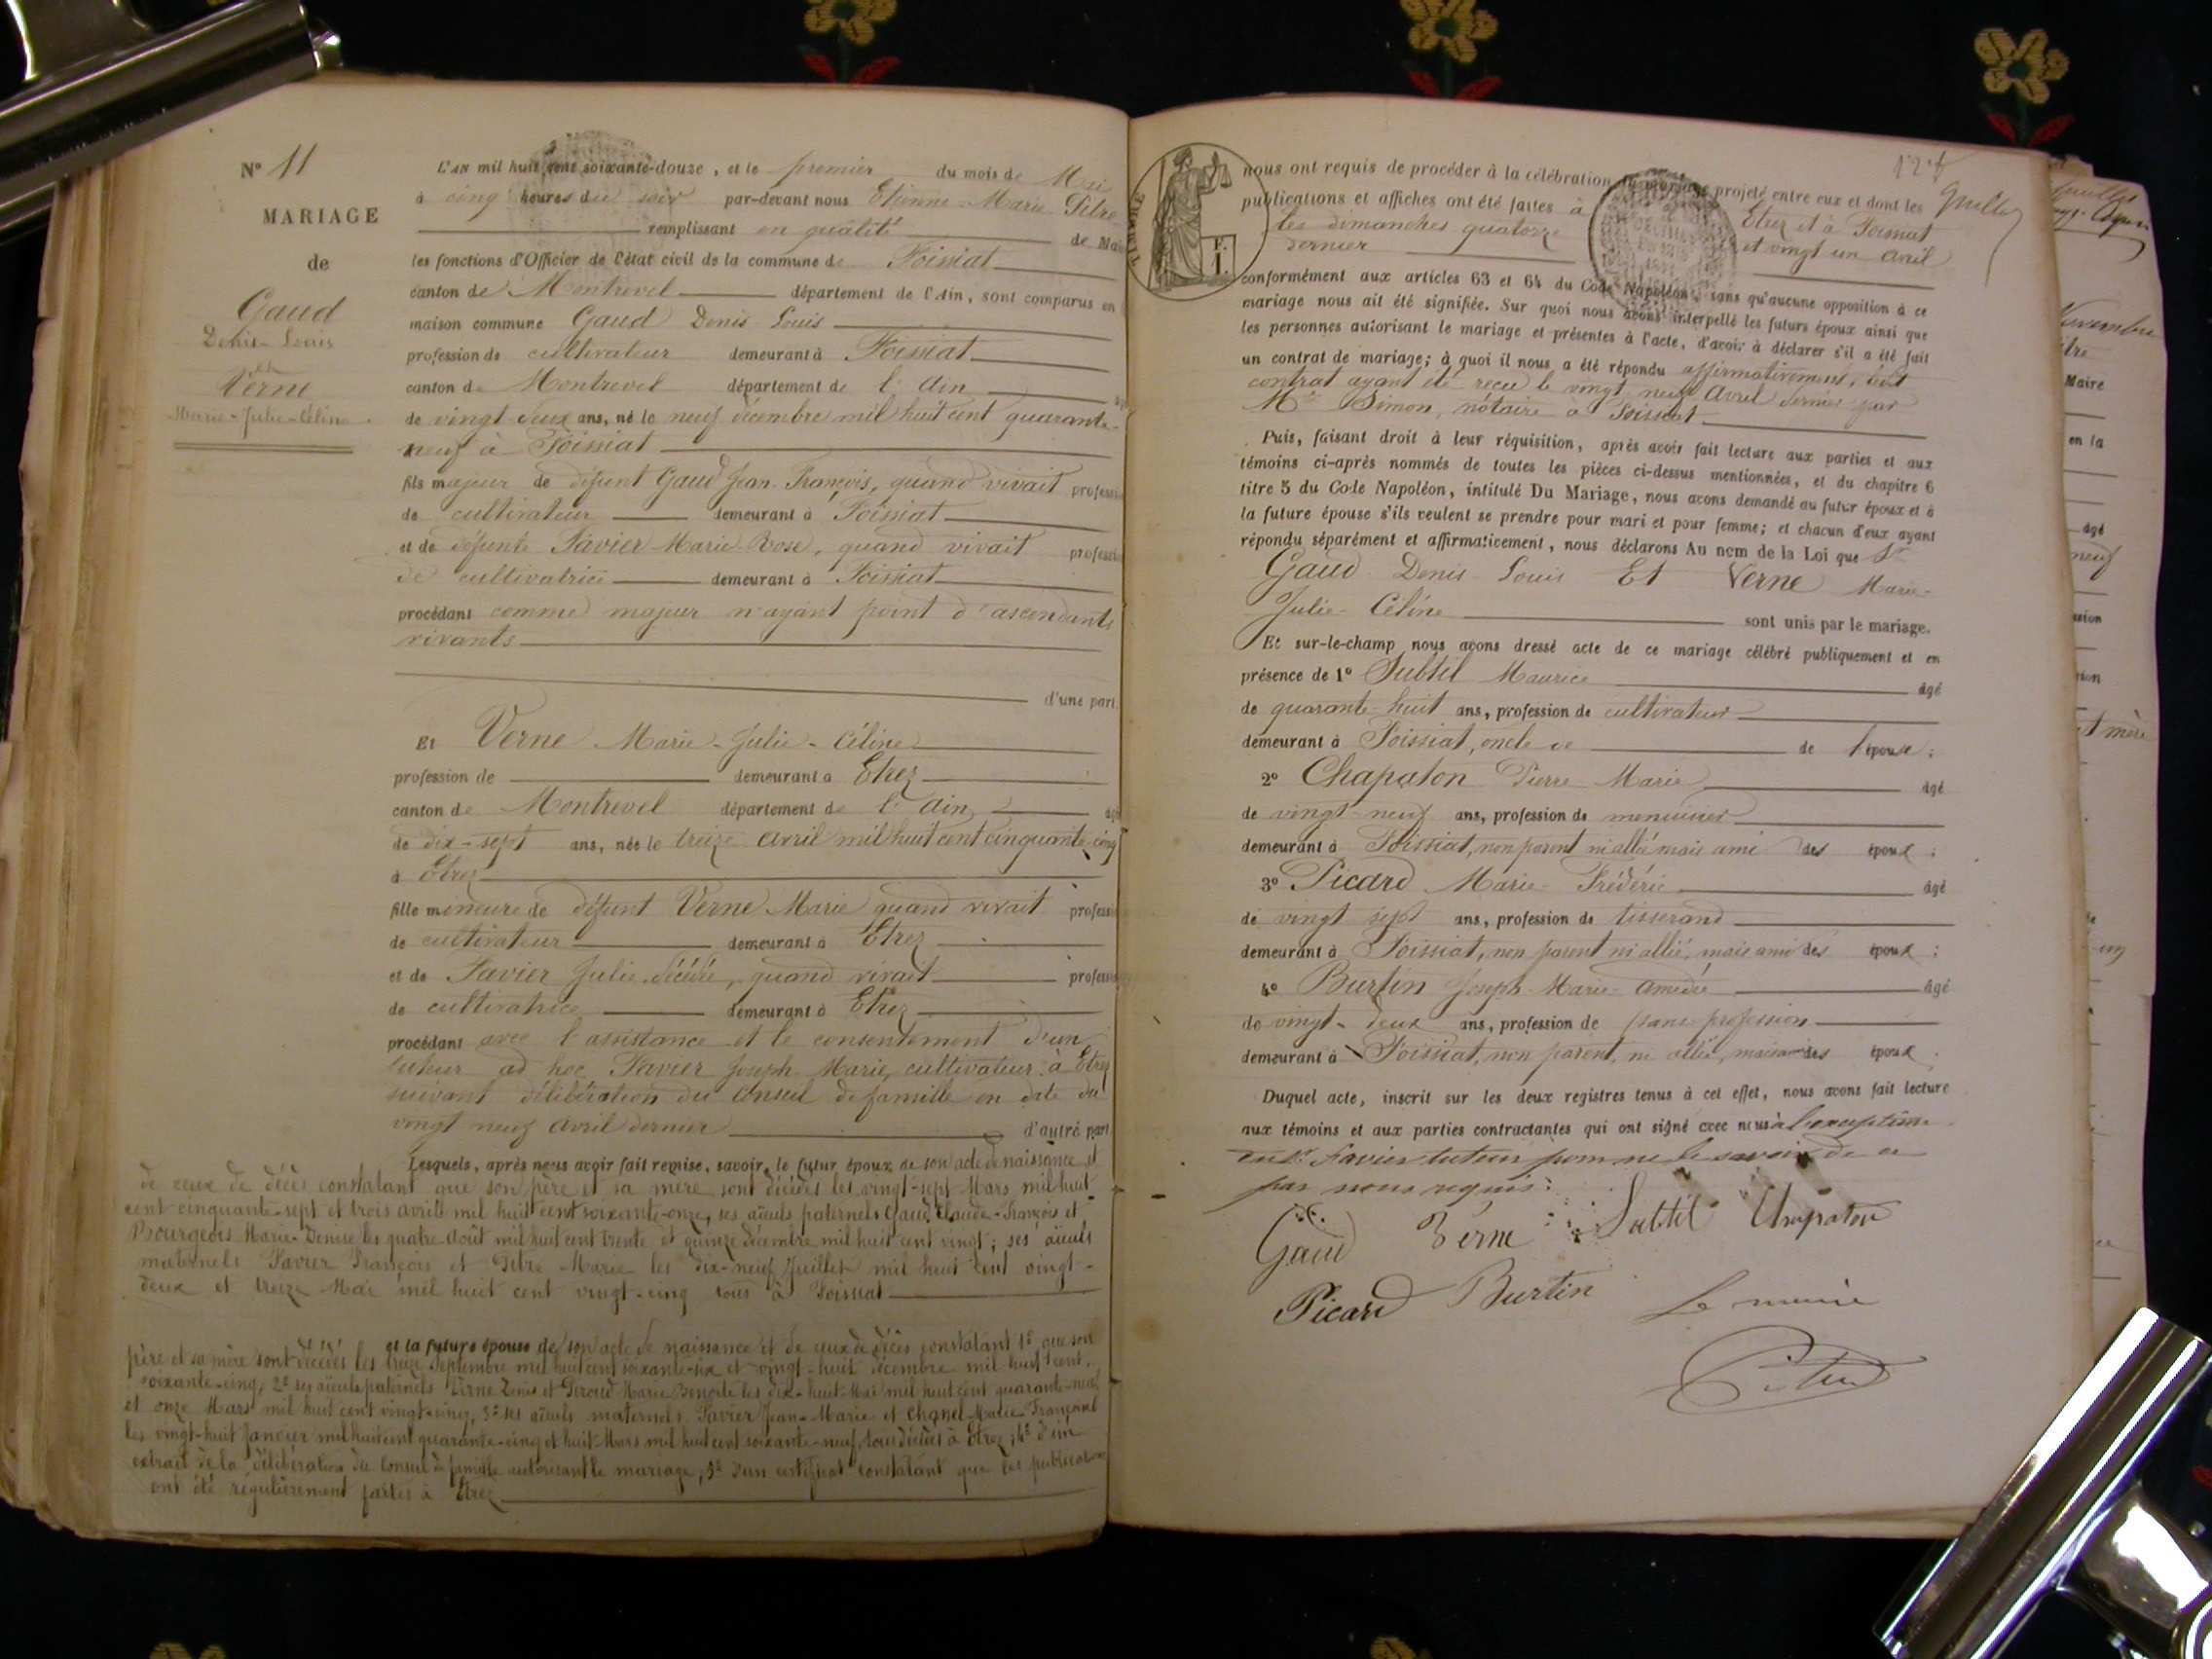 N° 11
MARIAGE
de
Gaud
Denis-Louis
et
Verne
Marie-Julie-Céline
L'AN mil huit cent soixante-douze, et le premier du mois de Mai
à cinq heures du soir par-devant nous Etienne-Marie Pitre
remplissant en qualité de Ma
les fonctions d'Officier de l'état civil de la commune de Foissiat
canton de Montrevel département de l'Ain, sont comparus en
maison commune Gaud Denis Louis
profession de cultivateur demeurant à Foissiat
canton de Montrevel département de l'Ain
de vingt deux ans, né le neuf décembre mil huit cent quarante-
neuf à Foissiat
fils majeur de défunt Gaud Jean François, quand vivait professi
de cultivateur demeurant à Foissiat
et de défunte Favier Marie-Rose, quand vivait professi
de cultivatrice demeurant à Foissiat
procédant comme majeur n'ayant point d'ascendants
vivants
d'une part.
Et Verne Marie-Julie-Céline
profession de demeurant à Etrez
canton de Montrevel département de l'Ain
de dix-sept ans, née le treize avril mil huit cent cinquante-cinq
à Etrez
fille mineure de défunt Verne Marie quand vivait professi
de cultivateur demeurant à Etrez
et de Favier Julie décédée, quand vivait professi
de cultivatrice demeurant à Etrez
procédant avec l'assistance et le consentement d'un
tuteur ad hoc Favier Joseph Marie, cultivateur à Etrez
suivant délibération du conseil de famille en date du
vingt neuf avril dernier d'autre part
Lesquels, après nous avoir fait remise, savoir, le futur époux de son acte de naissance et
de ceux de décès constatant que son père et sa mère sont décédés les vingt-sept Mars mil huit
cent cinquante-sept et trois avril mil huit cent soixante-onze, ses aïeuls paternels Gaud Claude-François et
Bourgeois Marie-Denise les quatre Août mil huit cent trente et quinze décembre mil huit cent vingt; ses aïeuls
maternels Favier François et Pitre Marie les dix-neuf Juillet mil huit cent vingt-
deux et treize Mai mil huit cent vingt-cinq tous à Foissiat
et la future épouse de son acte de naissance et de ceux de décès constatant 1° que son
père et sa mère sont décédés les treize Septembre mil huit cent soixante-six et vingt-huit décembre mil huit cent
soixante-cinq, 2° ses aïeuls paternels Verne Denis et Giroud Marie Benoite les dix-huit Mai mil huit cent quarante-neuf
et onze Mars mil huit cent vingt-cinq, 3° ses aïeuls maternels Favier Jean-Marie et Chanel Marie Françoise
les vingt-huit Janvier mil huit cent quarante-cinq et huit Mars mil huit cent soixante-neuf, tous décédés à Etrez, 4° d'un
extrait de la délibération du Conseil de famille autorisant le mariage; 5° d'un certificat constatant que les publications
ont été régulièrement faites à Etrez
TIMBRE
F. I.
nous ont requis de procéder à la célébration du mariage projeté entre eux et dont les
publications et affiches ont été faites à Etrez et à Foissiat
les dimanches quatorze et vingt un avril
dernier
conformément aux articles 63 et 64 du Code Napoléon, sans qu'aucune opposition à ce
mariage nous ait été signifiée. Sur quoi nous avons interpellé les futurs époux ainsi que
les personnes autorisant le mariage et présentes à l'acte, d'avoir à déclarer s'il a été fait
un contrat de mariage; à quoi il nous a été répondu affirmativement, ledit
contrat ayant été reçu le vingt neuf avril dernier par
Me Simon, notaire à Foissiat
Puis, faisant droit à leur réquisition, après avoir fait lecture aux parties et aux
témoins ci-après nommés de toutes les pièces ci-dessus mentionnées, et du chapitre 6
titre 5 du Code Napoléon, intitulé Du Mariage, nous avons demandé au futur époux et à
la future épouse s'ils veulent se prendre pour mari et pour femme; et chacun d'eux ayant
répondu séparément et affirmativement, nous déclarons Au nom de la Loi que Sr
Gaud Denis Louis Et Verne Marie-
Julie-Céline sont unis par le mariage.
Et sur-le-champ nous avons dressé acte de ce mariage célébré publiquement et en
présence de 1° Subtil Maurice âgé
de quarante-huit ans, profession de cultivateur
demeurant à Foissiat, oncle de de l'épouse;
2° Chapaton Pierre-Marie âgé
de vingt-neuf ans, profession de menuisier
demeurant à Foissiat, non parent ni allié mais ami des époux;
3° Picard Marie-Frédéric âgé
de vingt sept ans, profession de tisserand
demeurant à Foissiat, non parent ni allié, mais ami des époux;
4° Burtin Joseph-Marie-Amédée âgé
de vingt-deux ans, profession de sans profession
demeurant à Foissiat, non parent, ni allié, mais ami des époux.
Duquel acte, inscrit sur les deux registres tenus à cet effet, nous avons fait lecture
aux témoins et aux parties contractantes qui ont signé avec nous à l'exception
du Sr Favier tuteur pour ne le savoir de ce
par nous requis:
Gaud Verne Subtil Chapaton
Picard Burtin Le maire
Pitre
Novembre
Maire
en la
âgé
neuf